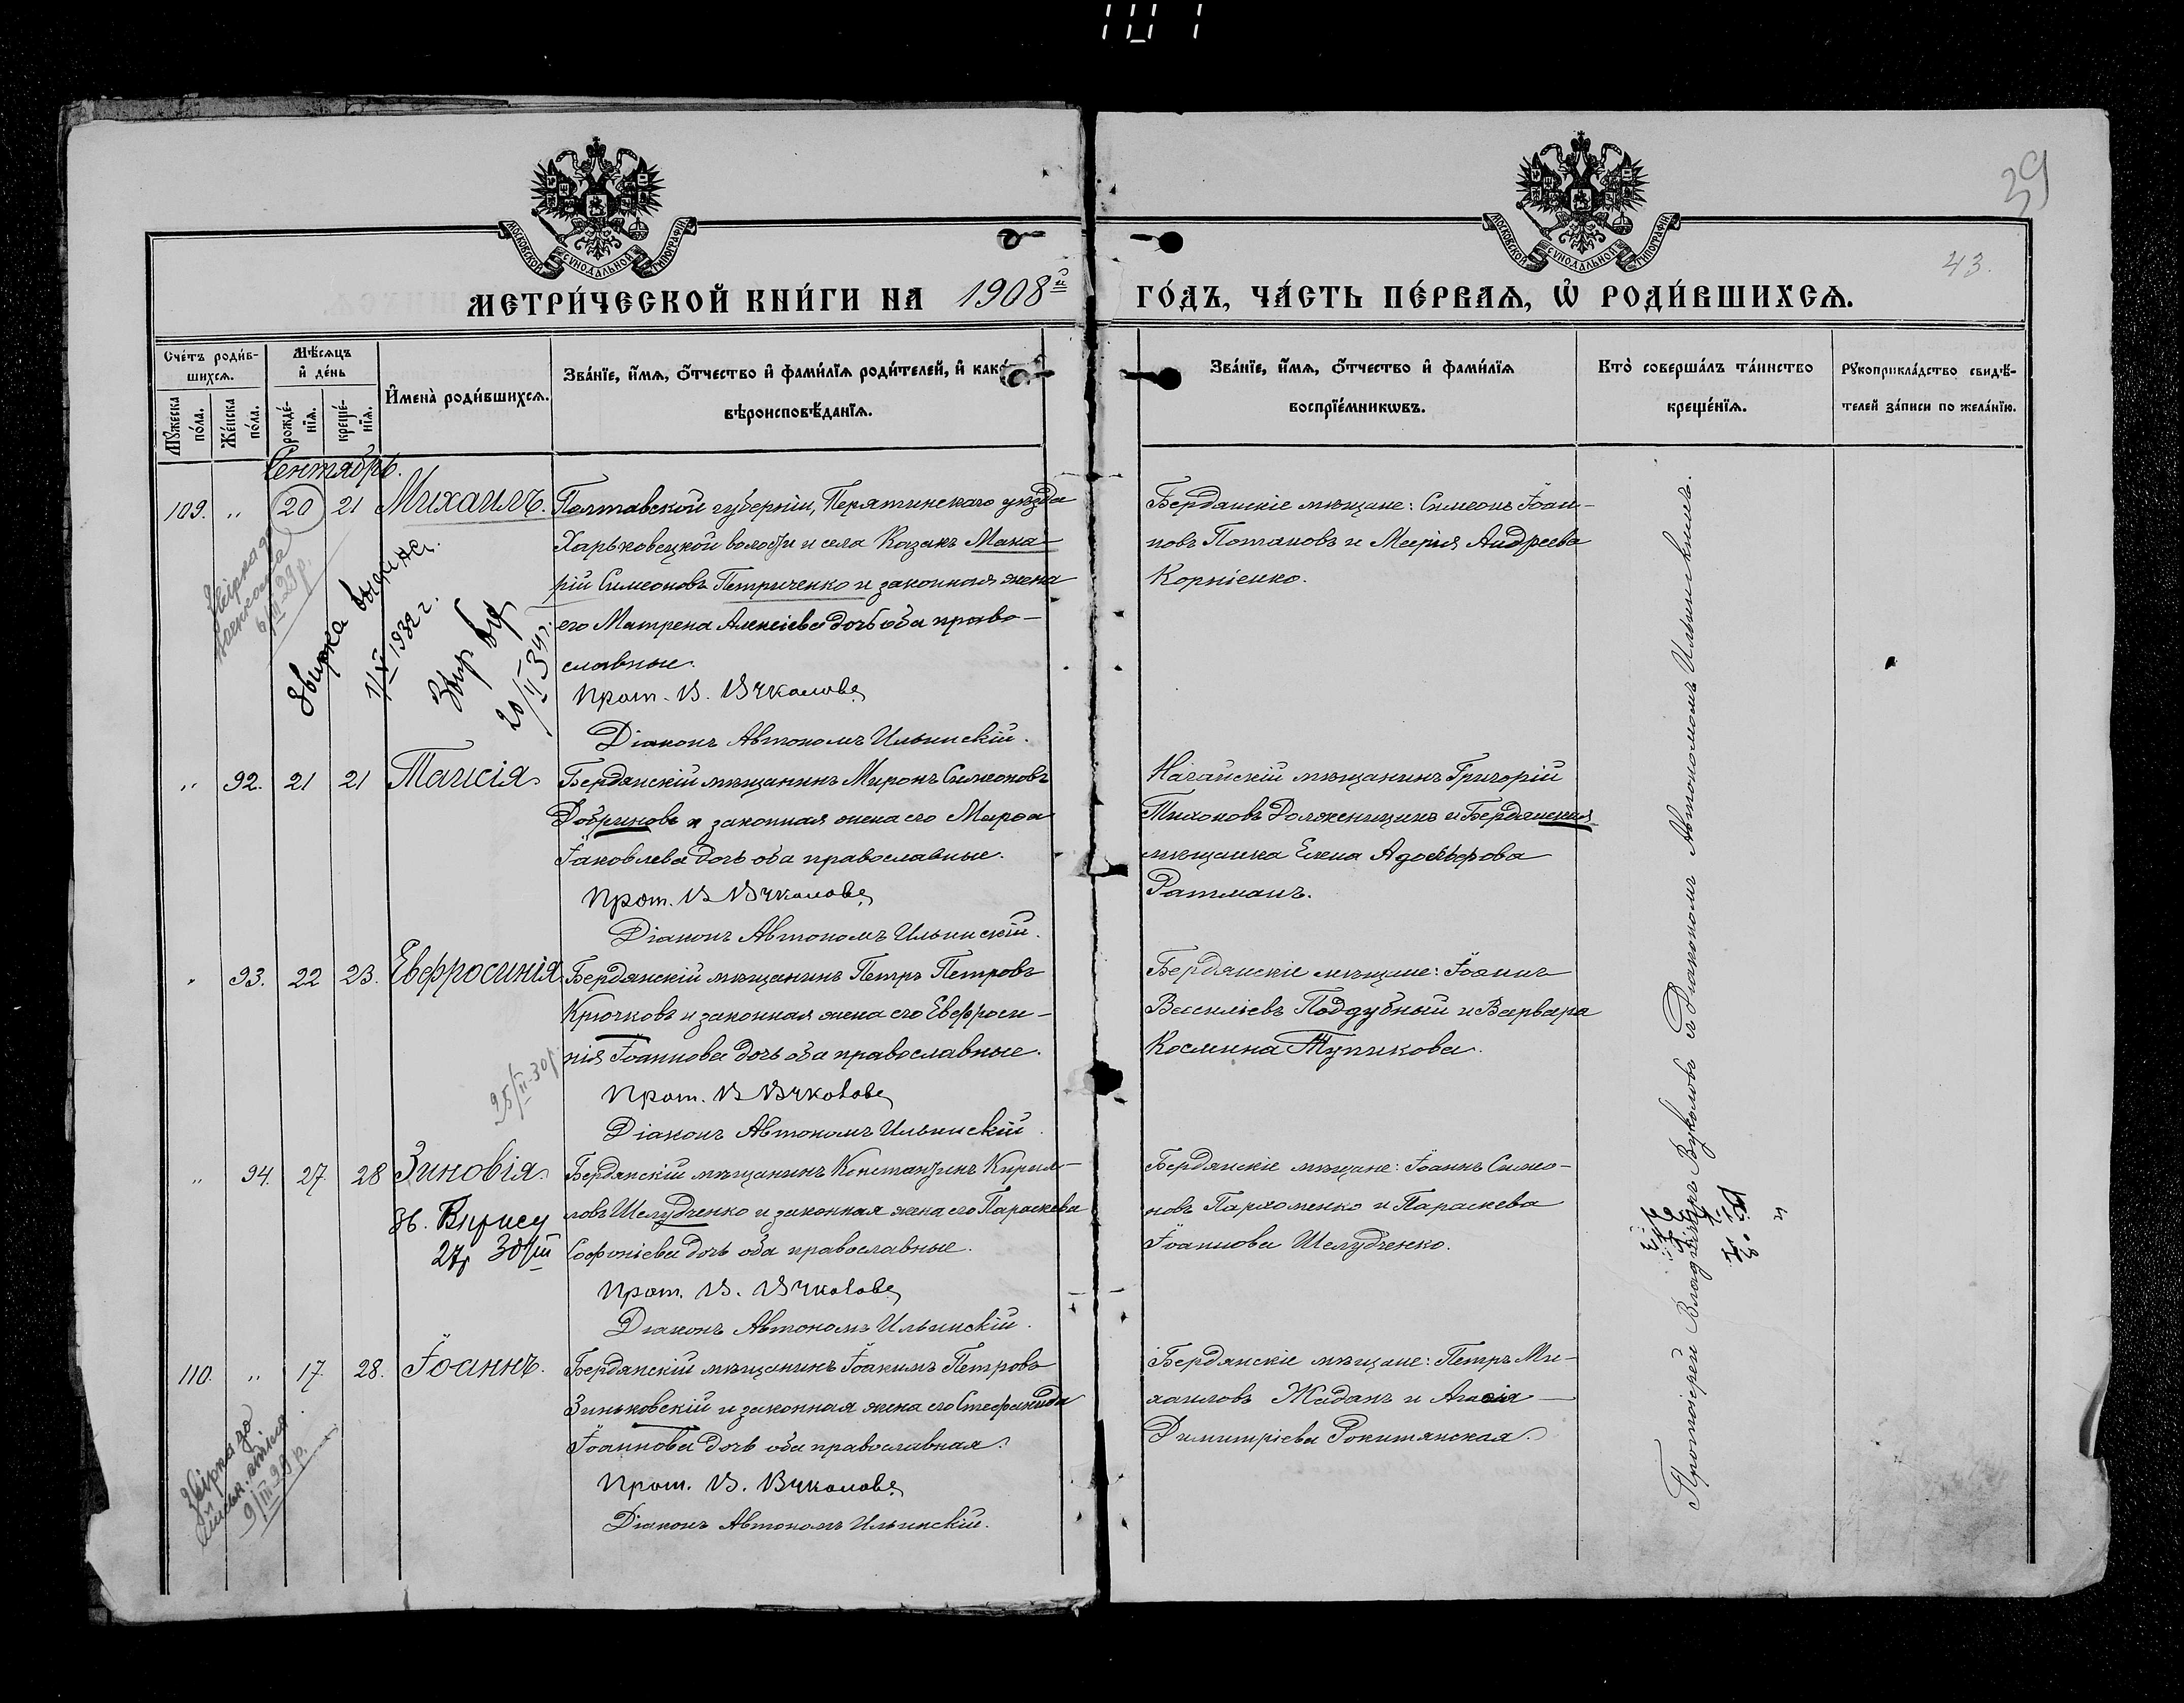 39
43.
МОСКОВСКОЙ СУНОДАЛЬНОЙ ТИПОГРАФІИ
МОСКОВСКОЙ СУНОДАЛЬНОЙ ТИПОГРАФІИ
МЕТРИ́ЧЕСКОЙ КНИ́ГИ НА 1908й ГО́ДЪ, ЧА́СТЬ ПЕ́РВАЯ, Ѡ҆ РОДИ́ВШИХСѦ.
Сче́тъ роди́в-
шихсѧ.
Мѣ́сѧцъ
и҆ де́нь
Мꙋ́жеска
по́ла.
Же́нска
по́ла.
рожде́-
нїѧ.
креще́-
нїѧ.
И҆мена̀ роди́вшихсѧ.
Зва́нїе, и҆́мѧ, ѻ҆́тчество и҆ фами́лїѧ роди́телей, и҆ како́
вѣроисповѣ́данїѧ.
Зва́нїе, и҆́мѧ, ѻ҆́тчество и҆ фами́лїѧ
воспрїе́мникѡвъ.
Кто̀ соверша́лъ та́инство
креще́нїѧ.
Рꙋкоприкла́дство свидѣ́-
телей за́писи по жела́нїю.
Сентябрь.
109. " 20 21 Михаилъ. Полтавской губерніи, Пирятинскаго уѣзда
Харьковецкой волости и села Казакъ Мака-
рій Симеоновъ Петриченко и законная жена
его Матрена Алексіева дочь оба право-
славные.
Прот. В. Вуколовъ
Діаконъ Автономъ Ильинскій.
Бердянскіе мѣщане: Симеонъ Іоан-
новъ Потаповъ и Марія Андреева
Корніенко.
6/III-28 р.
1/IX 1932 г.
20/II 34
" 92. 21 21 Таисія. Бердянскій мѣщанинъ Миронъ Симеоновъ
Добриновъ и законная жена его Марѳа
Іаковлева дочь оба православные.
Прот. В Вуколовъ
Діаконъ Автономъ Ильинскій.
Ногайскій мѣщанинъ Григорій
Тихоновъ Долженицинъ и Бердянская
мѣщанка Елена
Ратманъ.
" 93. 22 23. Евфросинія. Бердянскій мѣщанинъ Петръ Петровъ
Крючковъ и законная жена его Евфроси-
нія Іоаннова дочь оба православные.
Прот. В Вуколовъ
Діаконъ Автономъ Ильинскій
Бердянскіе мѣщане: Іоаннъ
Васильевъ Поддубный и Варвара
Космина Тупикова.
25/II-30 р.
" 94. 27 28 Зиновія. Бердянскій мѣщанинъ Константинъ Кирил-
ловъ Шелудченко и законная жена его Параскева
Софоніева дочь оба православные.
Прот. В. Вуколовъ
Діаконъ Автономъ Ильинскій.
Бердянскіе мѣщане: Іоаннъ Симео-
новъ Пархоменко и Параскева
Іоаннова Шелудченко.
110. " 17. 28. Іоаннъ. Бердянскій мѣщанинъ Іоакимъ Петровъ
Зиньковскій и законная жена его Стефанида
Іоаннова дочь оба православная.
Прот. В. Вуколовъ
Діаконъ Автономъ Ильинскій.
Бердянскіе мѣщане: Петръ Ми-
хаиловъ Жаданъ и Агаѳія
Димитріева Рокитянская.
9/III-28 р.
Протоіерей Владиміръ Вуколовъ съ Діакономъ Автономомъ Ильинскимъ.